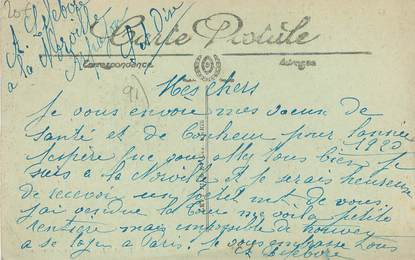 A Lefebvre
a la Norville
Arpajon
Carte Postale
Correspondance Adresse
91
Mes chers
je vous envoie mes vœux de
santé et de bonheur pour l'année
1920
J'espère que vous allez tous bien je
suis a la Norville et je serais heureuse
de recevoir un petit mot de vous.
J'ai vendue la me voila petite
rentiere mais impossible de trouver
a se loger a Paris. je vous embrasse tous
A Lefebvre